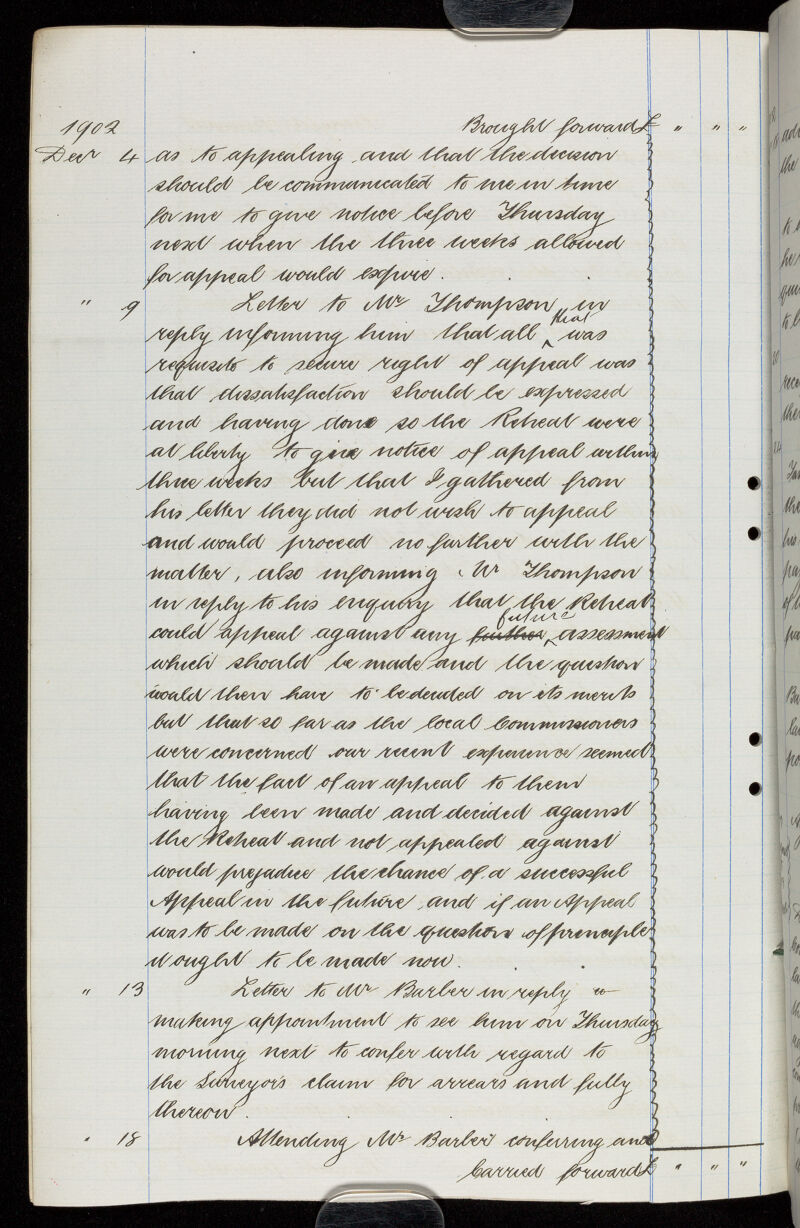 1902 Brought forward £ " " "
Decr 4 as to appealing and that the decision
should be communicated to me in time
for me to give notice before Thursday
next when the three weeks allowed
for appeal would expire.
" 9 Letter to Mr Thompson in
reply informing him that all that was
requisite to secure right of appeal was
that dissatisfaction should be expressed
and having done so the Retreat were
at liberty to give notice of appeal within
three weeks but that I gathered from
his letter they did not wish to appeal
and would proceed no further with the
matter, also informing Mr Thompson
in reply to his enquiry that the Retreat
could appeal against any further future assessment
which should be made and the question
would then have to be decided on its merits
but that so far as the local Commissioners
were concerned our recent experience seemed
that the fact of an appeal to them
having been made and decided against
the Retreat and not appealed against
would prejudice the chance of a successful
Appeal in the future and if an Appeal
was to be made on the question of principle
it ought to be made now.
" 13 Letter to Mr Barber in reply
making appointment to see him on Thursday
morning next to confer with regard to
the Surveyor's claim for arrears and fully
thereon.
" 18 Attending Mr Barber conferring and
Carried forward £ " " "